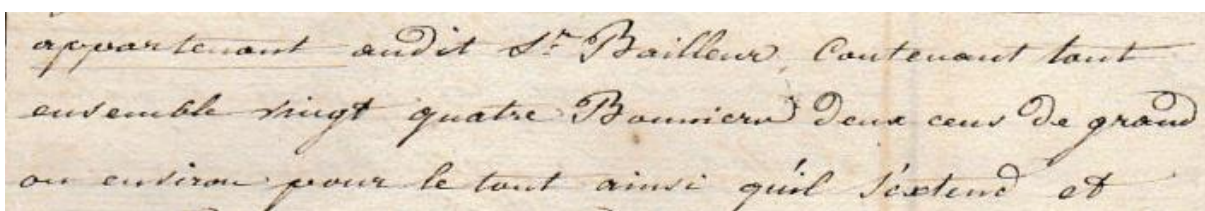 appartenant audit Sr. Bailleur, Contenant tout
ensemble vingt quatre Bonniers deux cens de grand
ou environ pour le tout ainsi qu'il s'extend et